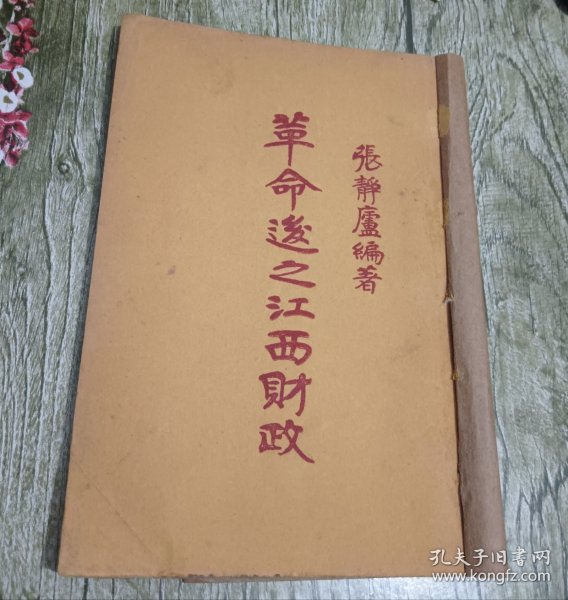 張靜廬編著
革命後之江西財政
孔夫子旧书网
www.kongfz.com